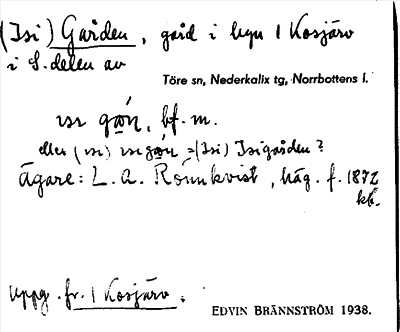 (Isi) Gården, gård i byn 1 Kosjärv
i S. delen av
Töre sn, Nederkalix tg, Norrbottens l.
ɪsɪ gɑ́n, bf. m.
eller (ɪsɪ) ɪsɪgɑ́n = (Isi) Isigården?
Ägare: L. A. Rönnkvist, häg. f. 1872
Uppg. fr. 1 Kosjärv.
EDVIN BRÄNNSTRÖM 1938.